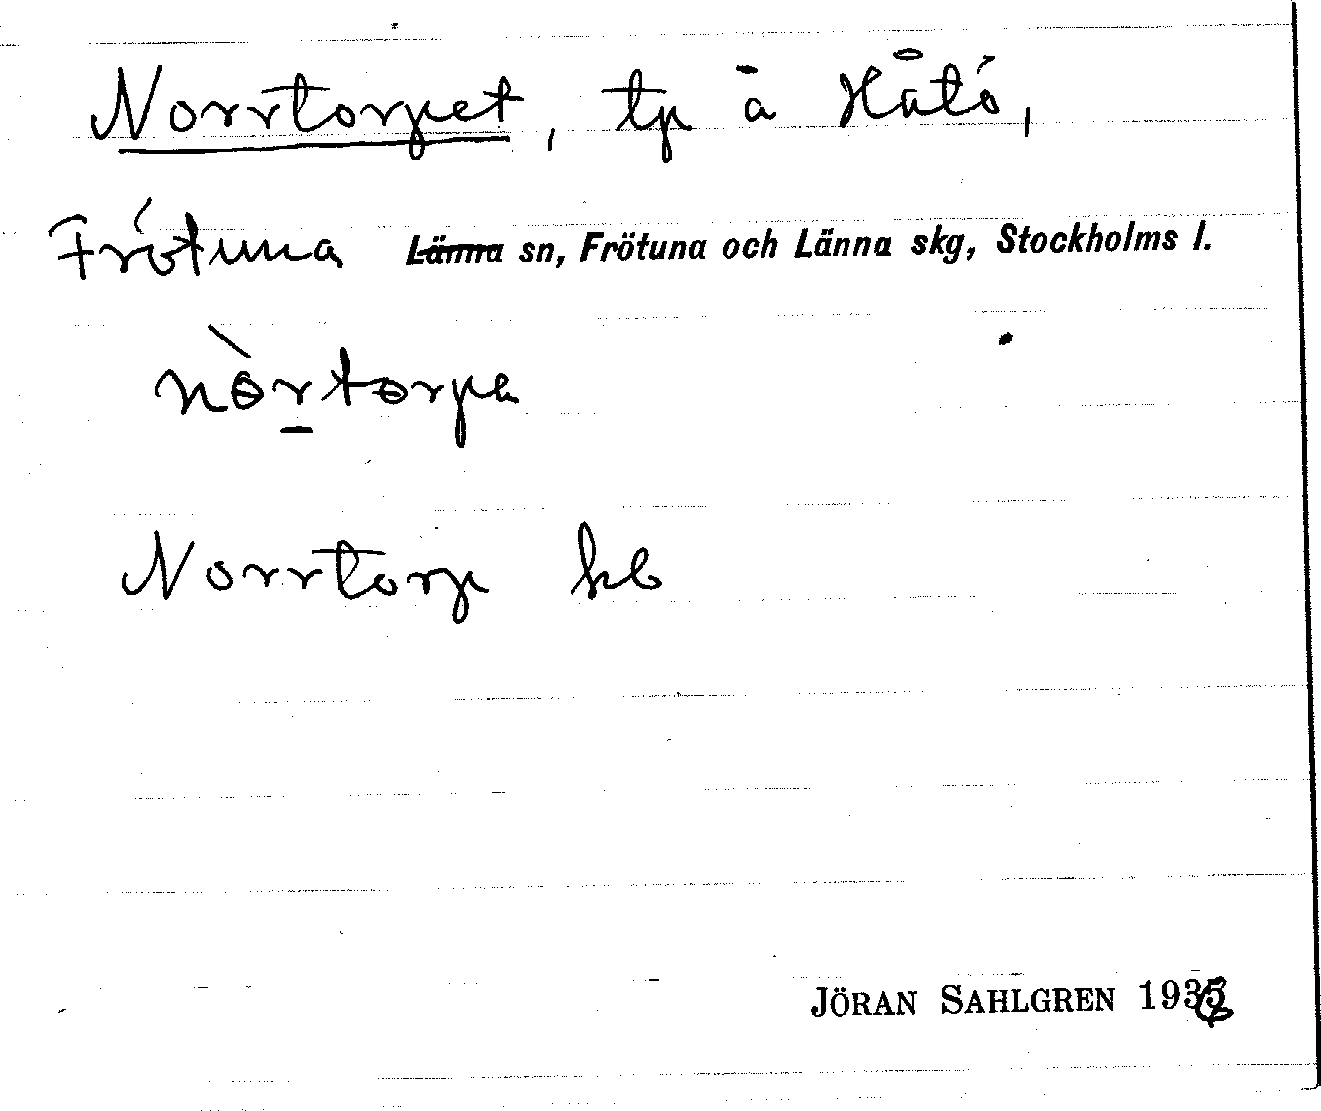 Norrtorpet, tp å Håtö,
Frötuna Länna sn, Frötuna och Länna skg, Stockholms l.
nòrtorpa
Norrtorp hb
JÖRAN SAHLGREN